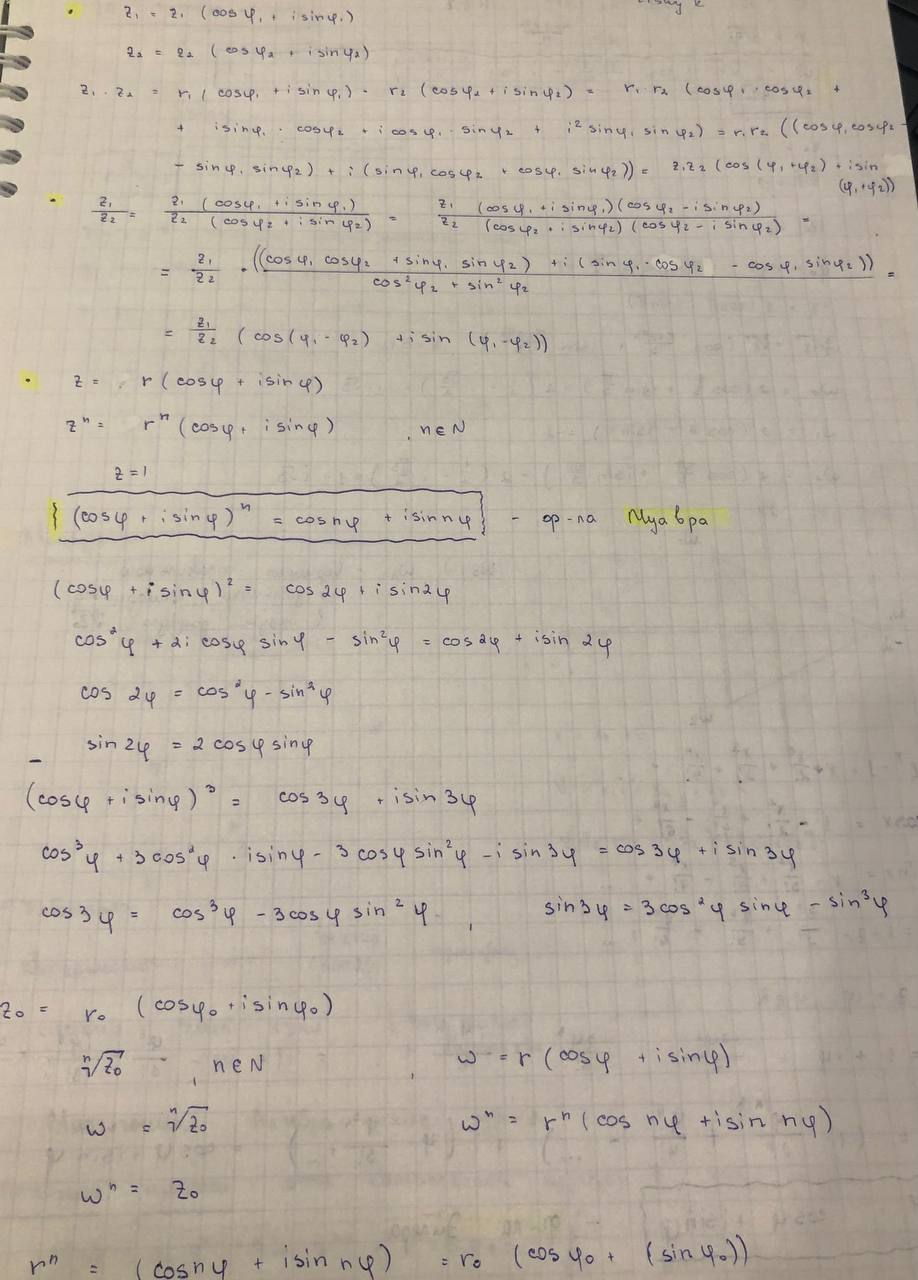 z₁ = z₁ (cosφ₁ + isinφ₁)
z₂ = z₂ (cosφ₂ + isinφ₂)
z₁ · z₂ = r₁ (cosφ₁ + isinφ₁) · r₂ (cosφ₂ + isinφ₂) = r₁ · r₂ (cosφ₁ · cosφ₂ +
+ isinφ₁ · cosφ₂ + icosφ₁ · sinφ₂ + i² sinφ₁ sinφ₂) = r₁r₂ ((cosφ₁ cosφ₂ -
- sinφ₁ sinφ₂) + i (sinφ₁ cosφ₂ + cosφ₁ sinφ₂)) = z₁z₂ (cos(φ₁+φ₂) + isin
(φ₁+φ₂))
z₁/z₂ = z₁/z₂ (cosφ₁ + isinφ₁)/(cosφ₂ + isinφ₂) = z₁/z₂ (cosφ₁ + isinφ₁)(cosφ₂ - isinφ₂)/(cosφ₂ + isinφ₂)(cosφ₂ - isinφ₂) =
= z₁/z₂ · ((cosφ₁ cosφ₂ + sinφ₁ sinφ₂) + i(sinφ₁ · cosφ₂ - cosφ₁ sinφ₂))/cos²φ₂ + sin²φ₂ =
= z₁/z₂ (cos(φ₁ - φ₂) + isin(φ₁ - φ₂))
z = r (cosφ + isinφ)
zⁿ = rⁿ (cosφ + isinφ) , n∈N
z = 1
{(cosφ + isinφ)ⁿ = cosnφ + isinnφ} - ф-ла Муавра
(cosφ + isinφ)² = cos2φ + isin2φ
cos²φ + 2i cosφ sinφ - sin²φ = cos2φ + isin2φ
cos 2φ = cos²φ - sin²φ
sin2φ = 2cosφ sinφ
(cosφ + isinφ)³ = cos3φ + isin3φ
cos³φ + 3cos²φ · isinφ - 3cosφ sin²φ - isin3φ = cos3φ + isin3φ
cos3φ = cos³φ - 3cosφ sin²φ , sin3φ = 3cos²φ sinφ - sin³φ
z₀ = r₀ (cosφ₀ + isinφ₀)
ⁿ√z₀ , n∈N , ω = r (cosφ + isinφ)
ω = ⁿ√z₀ ωⁿ = rⁿ (cos nφ + isin nφ)
ωⁿ = z₀
rⁿ = (cosnφ + isin nφ) = r₀ (cosφ₀ + (sinφ₀))